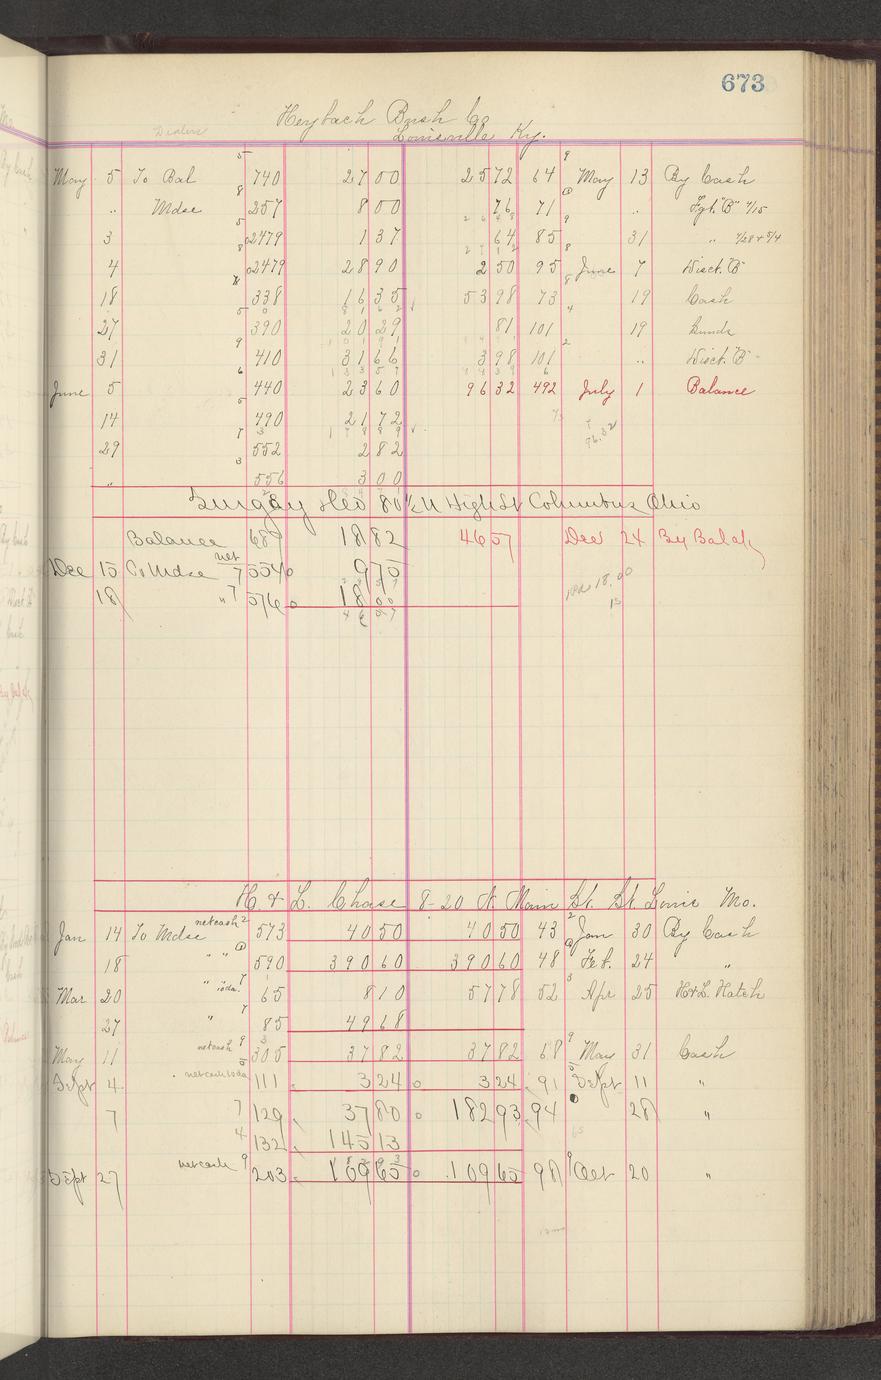 673
Heybach Bush Co
Dealers Louisville Ky.
May 5 To Bal 740 27 00 25 72 64 May 13 By Cash
" Mdse 257 8 00 76 71 " Fgt. "B" 4/15
3 2479 1 37 64 85 31 " 4/28 + 5/4
4 2479 28 90 2 50 95 June 7 Disct. "B"
18 338 16 35 53 98 73 19 Cash
27 390 20 29 81 101 19 Sunds
31 410 31 66 3 98 101 " Disct. "B"
June 5 440 23 60 96 32 492 July 1 Balance
14 490 21 72
29 552 2 82
" 556 3 00
Geo 80½ N High St Columbus Ohio
Balance 689 18 82 46 57 Dec 24 By Bal
Dec 15 To Mdse net 7 554 9 75
18 " 7 576 18 00
H. & L. Chase 8-20 N Main St. St Louis Mo.
Jan 14 To Mdse net cash 2 573 40 50 40 50 43 2 Jan 30 By Cash
18 " " 590 390 60 390 60 48 Feb. 24 "
Mar 20 " 7 65 8 10 57 78 52 3 Apr 25 H & L. Hatch
27 " 7 85 49 68
May 11 net cash 9 305 37 82 37 82 68 9 May 31 Cash
Sept 4 net cash 10 da 111 3 24 3 24 91 Sept 11 "
7 7 129 37 80 182 93 94 28 "
4 132 145 13
Sept 27 net cash 9 203 109 65 109 65 98 9 Oct 20 "